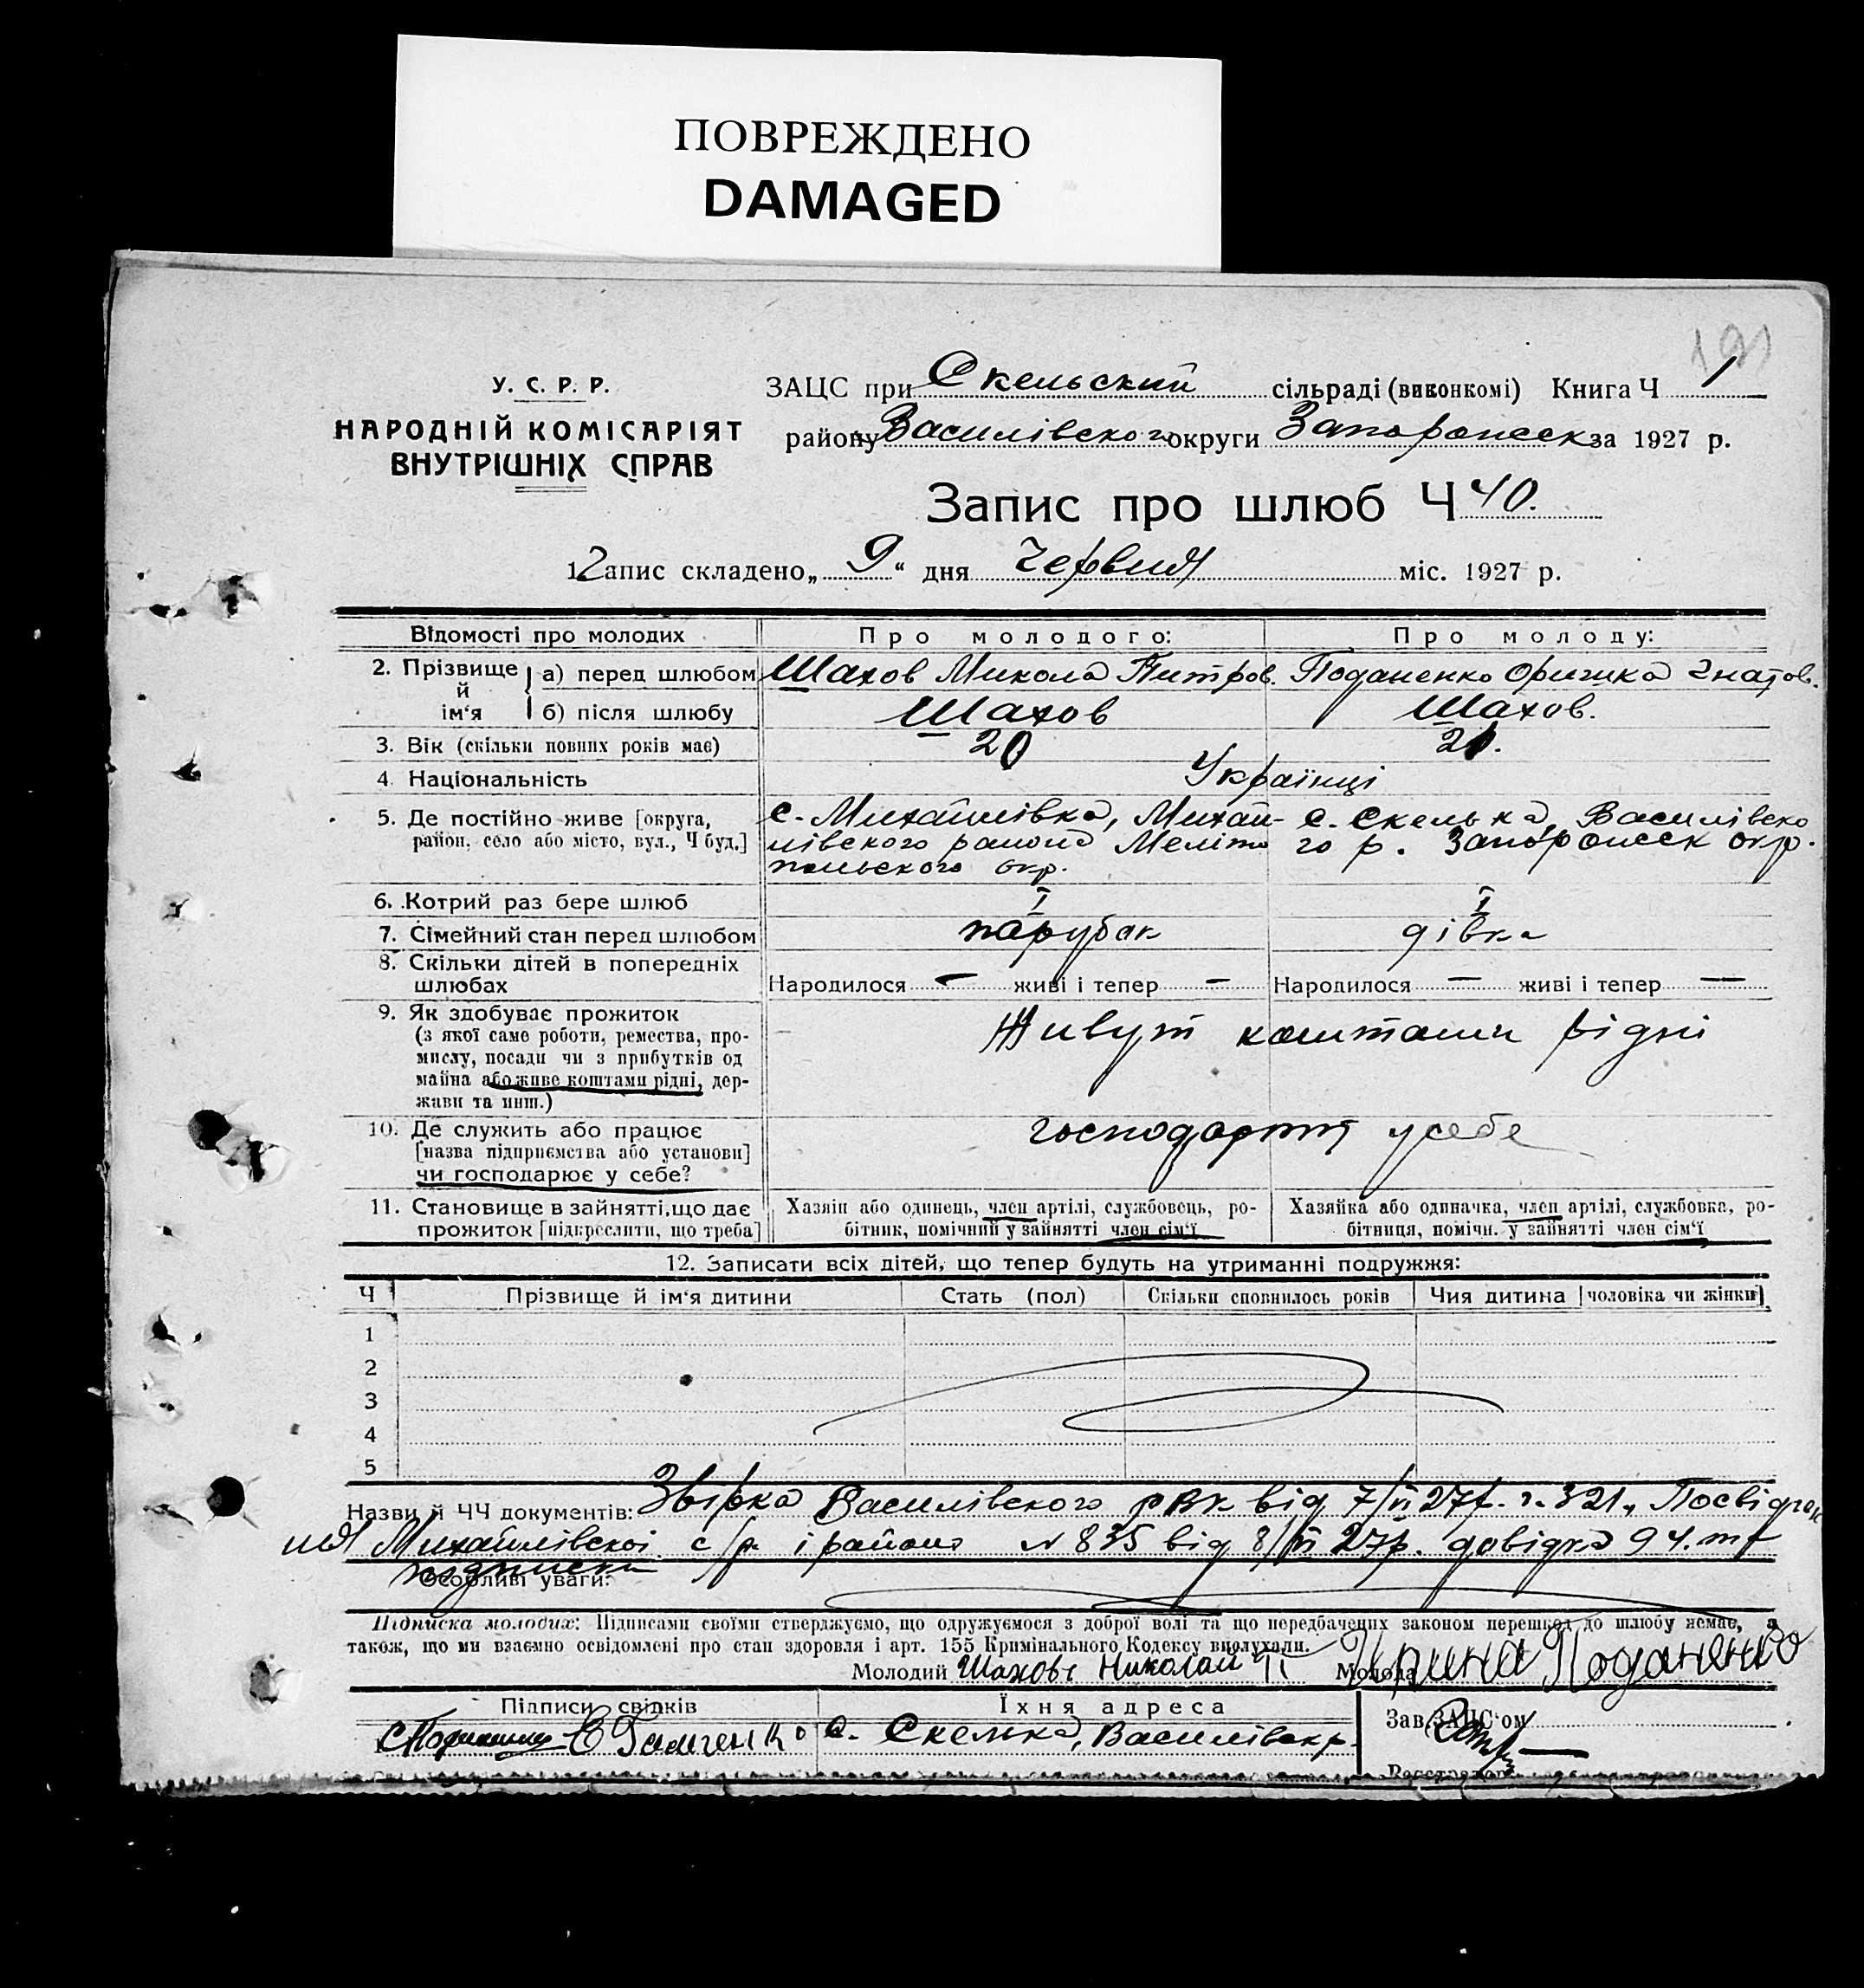 ПОВРЕЖДЕНО
DAMAGED
191
У. С. Р. Р.
НАРОДНІЙ КОМІСАРІЯТ
ВНУТРІШНІХ СПРАВ
ЗАЦС при Скельский сільраді (виконкомі) Книга Ч 1
району Василівского округи Запоріжск за 1927 р.
Запис про шлюб Ч 40.
12апис складено „ 9 “ дня Червня міс. 1927 р.
Відомості про молодих Про молодого: Про молоду:
2. Прізвище й ім‘я а) перед шлюбом Шахов Микола Питров. Поданенко Оришка Гнатов.
б) після шлюбу Шахов Шахов.
3. Вік (скільки повних років має) 20 21.
4. Національність Українці
5. Де постійно живе [округа, район, село або місто, вул., Ч буд.] с. Михайлівка, Михай- с. Скелька, Василівско
лівского району Меліто го р. Запоріжск окр.
польского окр.
6. Котрий раз бере шлюб I I
7. Сімейний стан перед шлюбом парубак дівка
8. Скільки дітей в попередніх шлюбах Народилося — живі і тепер — Народилося — живі і тепер —
9. Як здобуває прожиток Живут коштами рідні
(з якої саме роботи, ремества, про-
мислу, посади чи з прибутків од
майна або живе коштами рідні, дер-
жави та инш.)
10. Де служить або працює господарют у себе
[назва підприємства або установи]
чи господарює у себе?
11. Становище в зайнятті, що дає Хазяїн або одинець, член артілі, службовець, ро- Хазяйка або одиначка, член артілі, службовка, ро-
прожиток [підкреслити, що треба] бітник, помічний у зайнятті член сім‘ї бітниця, помічн. у зайнятті член сім‘ї
12. Записати всіх дітей, що тепер будуть на утриманні подружжя:
Ч Прізвище й ім‘я дитини Стать (пол) Скільки сповнилось років Чия дитина [чоловіка чи жінки]
1
2
3
4
5
Назви й ЧЧ документів: Звірка Василівского РВК від 7/VI 27р. ч. 321, Посвідчен
ня Михайлівскої с/р. і району № 835 від 8/VI 27р. довідка 94.
підписки
Особливі уваги:
Підписка молодих: Підписами своїми стверджуємо, що одружуємося з доброї волі та що передбачених законом перешкод до шлюбу немає, а
також, що ми взаємно освідомлені про стан здоровля і арт. 155 Кримінального Кодексу вислухали.
Молодий Шахов Николай П Молода Ирина Поданенко
Підписи свідків Їхня адреса Зав ЗАЦС‘ом
с. Скелька, Василівск р.
Реєстратор